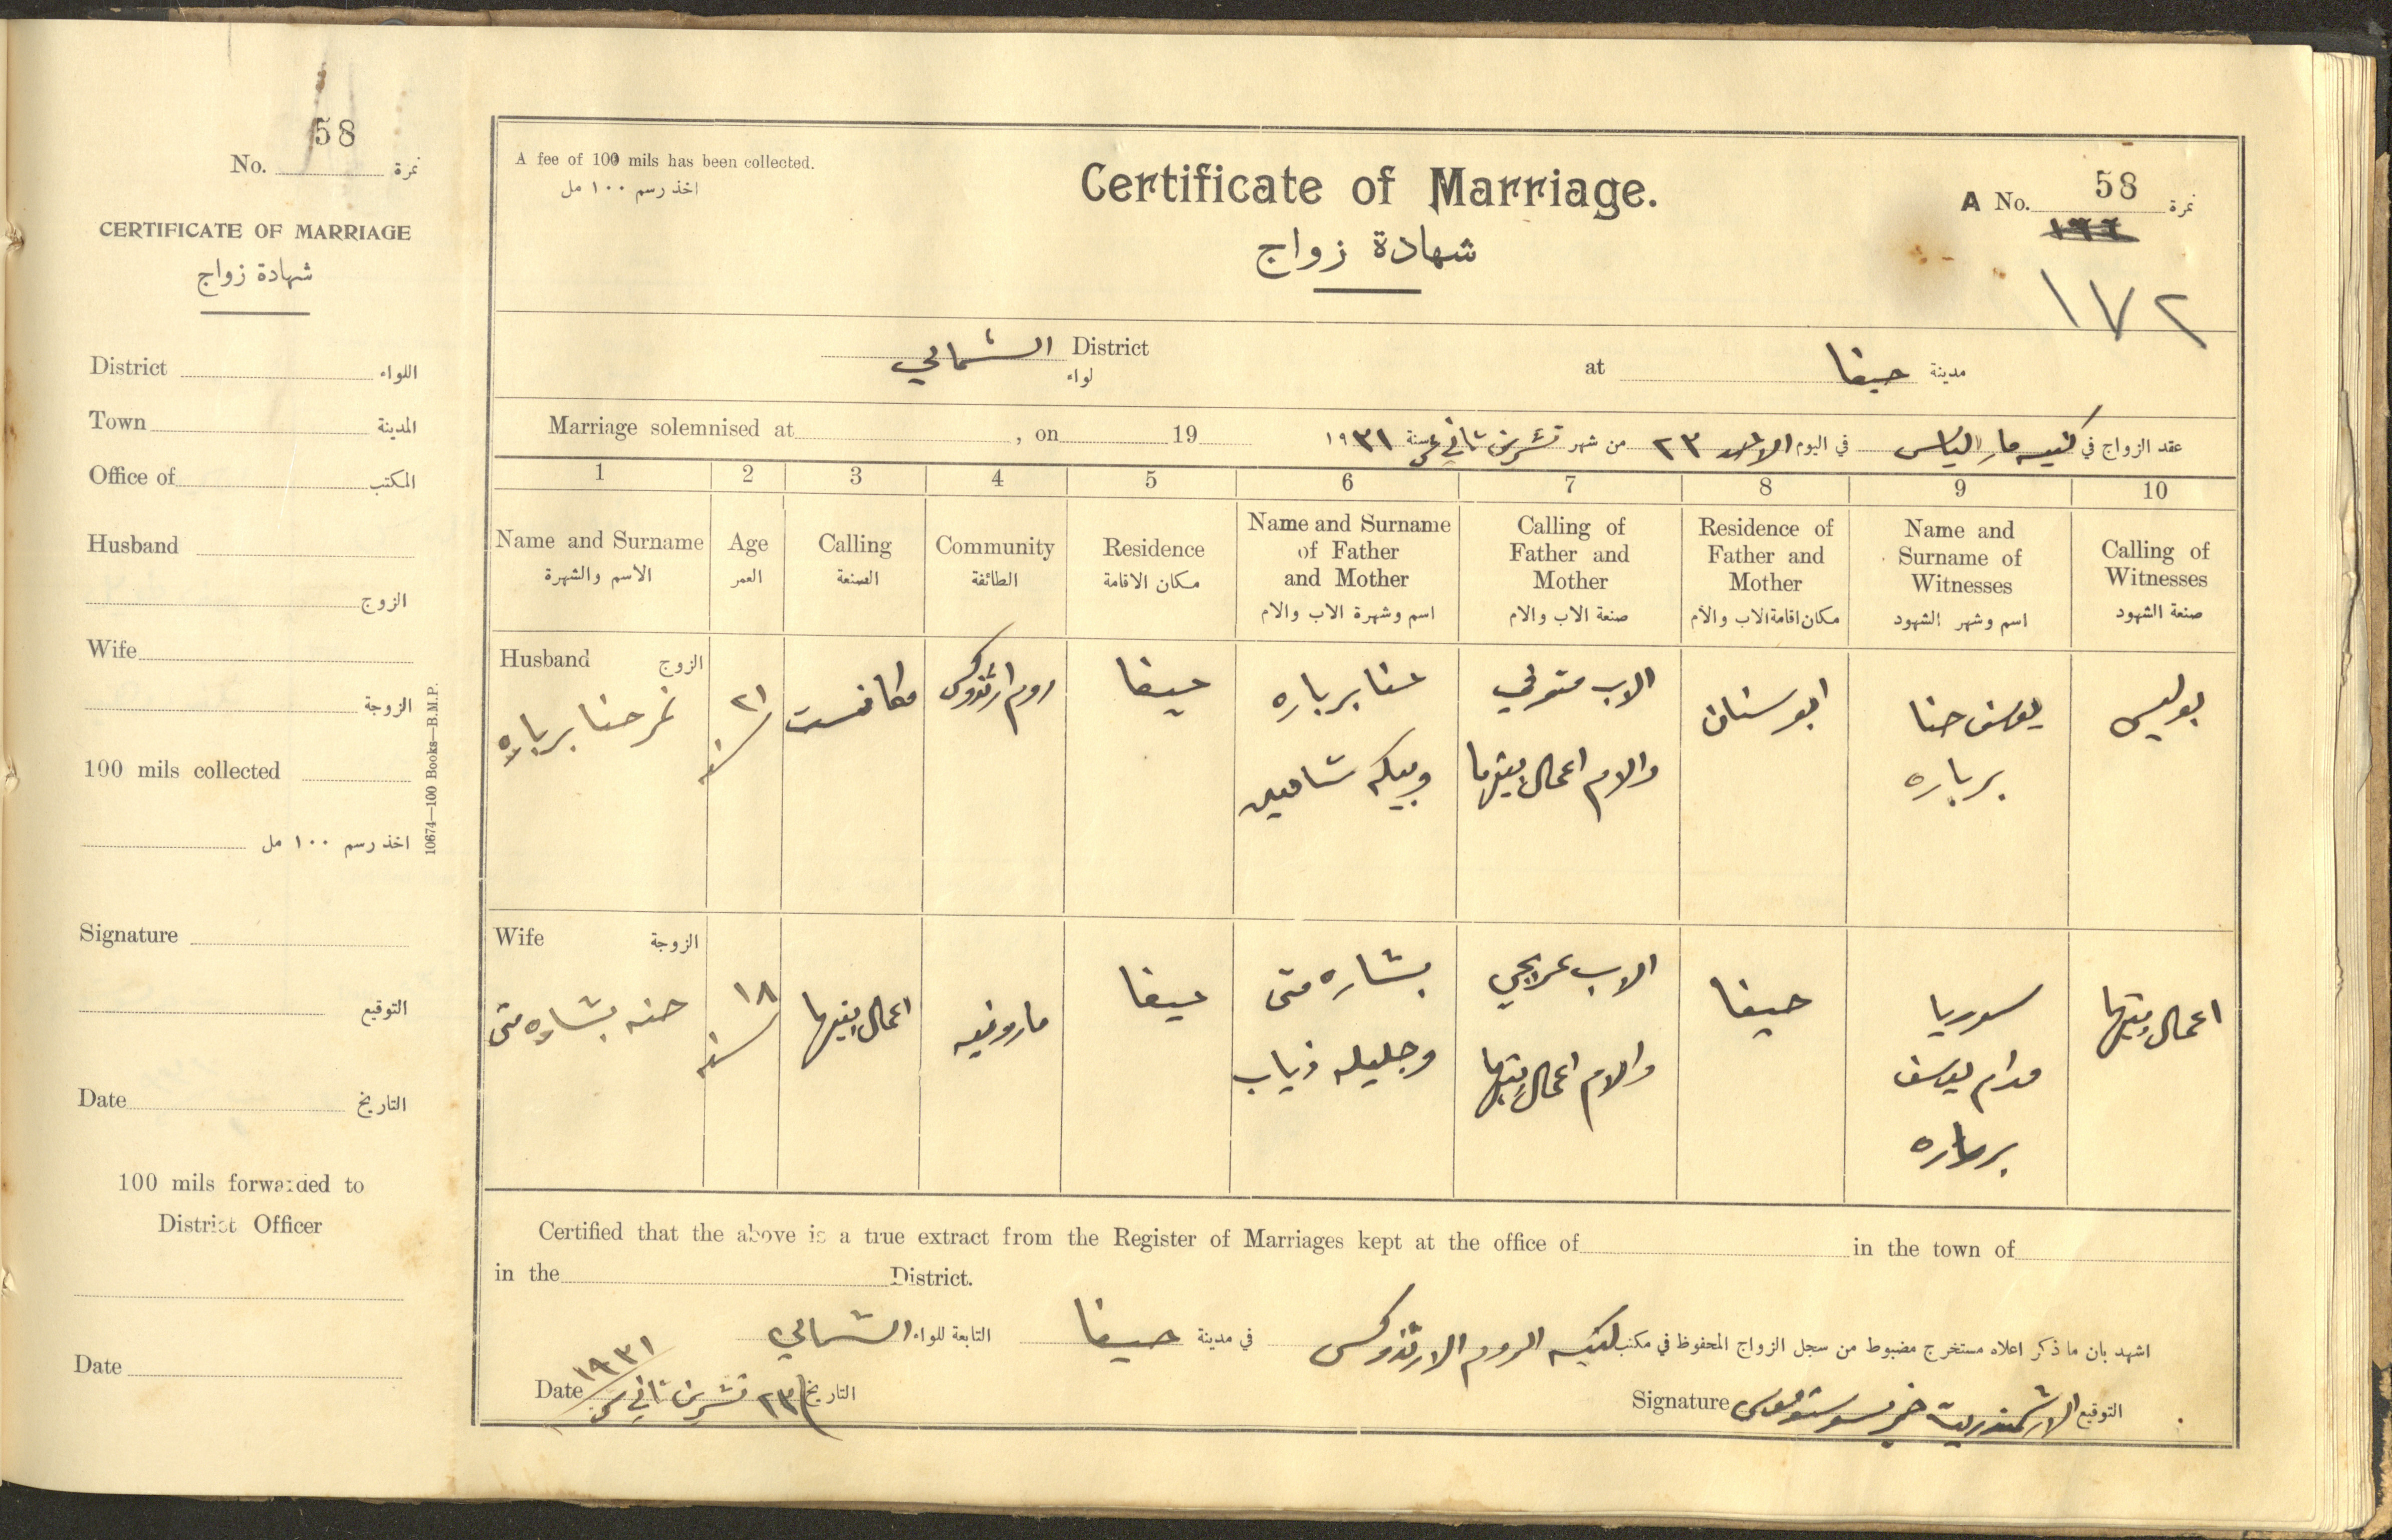 58
No. نمرة
CERTIFICATE OF MARRIAGE
شهادة زواج
District اللواء
Town المدينة
Office of المكتب
Husband
الزوج
Wife
الزوجة
100 mils collected
اخذ رسم ١٠٠ مل
Signature
التوقيع
Date التاريخ
100 mils forwarded to
District Officer
Date
10674—100 Books—B.M.P.
A fee of 100 mils has been collected.
اخذ رسم ١٠٠ مل
Certificate of Marriage.
شهادة زواج
A No. 58 نمرة
١٧٢
District الشمالي
لواء
at حيفا مدينة
Marriage solemnised at , on 19
عقد الزواج في كنيسه مار الياس في اليوم الاحد ٢٣ من شهر تشرين ثاني سنة ١٩٣١
1 2 3 4 5 6 7 8 9 10
Name and Surname الاسم والشهرة
Age العمر
Calling الصنعة
Community الطائفة
Residence مكان الاقامة
Name and Surname of Father and Mother اسم وشهرة الاب والام
Calling of Father and Mother صنعة الاب والام
Residence of Father and Mother مكان اقامة الاب والام
Name and Surname of Witnesses اسم وشهر الشهود
Calling of Witnesses صنعة الشهود
Husband الزوج
نمر حنا برباره
٢١ سنه
روم ارثوذوكس
حيفا
حنا برباره
الاب متوفي
والام اعمال بيتها
ابو سنان
يوسف حنا
برباره
بوليس
Wife الزوجة
حنه بشاره متى
١٨ سنه
اعمال بيتها
مارونيه
حيفا
بشاره متى
وجليله ذياب
الاب عربجي
والام اعمال بيتها
حيفا
سوريا
مدام يوسف
برباره
اعمال بيتها
Certified that the above is a true extract from the Register of Marriages kept at the office of in the town of
in the District.
اشهد بان ما ذكر اعلاه مستخرج مضبوط من سجل الزواج المحفوظ في مكتب كنيسه الروم الارثوذوكس في مدينة حيفا التابعة للواء الشمالي
Signature الارشمندريت خريسوستوموس التوقيع
Date ٢٣ تشرين ثاني سنة ١٩٣١ التاريخ